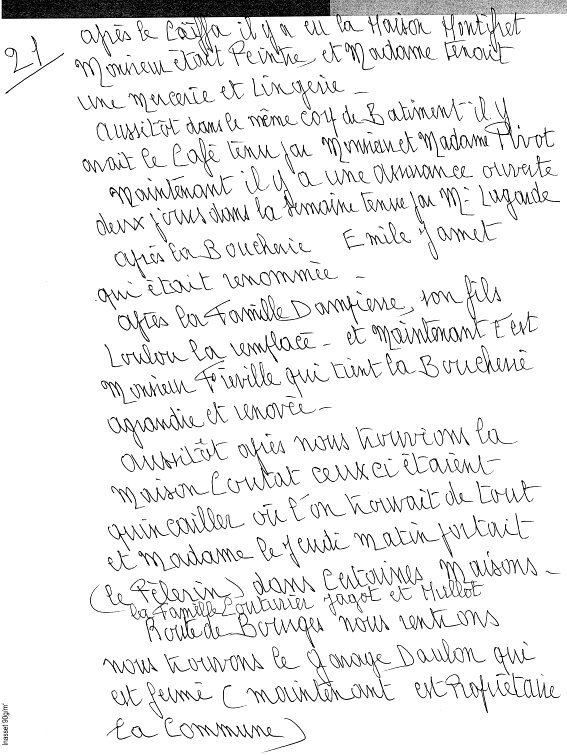 21
après le Caïffa il y a eu la Maison Montifret
Monsieur était Peintre, et Madame tenait
une Mercerie et Lingerie -
aussitôt dans le même corp de Batiment il y
avait le Café tenu par Monsieur et Madame Pivot
Maintenant il y a une assurance ouverte
deux jours dans la semaine tenue par Mr Lagarde
après la Boucherie Emile Jamet
qui était renommée -
après la Famille Dampierre, son fils
Loulou la remplacé - et Maintenant c'est
Monsieur Fréville qui tient la Boucherie
agrandie et renovée -
aussitôt après nous trouvions la
Maison Coutat ceux ci étaient
quincailler où l'on trouvait de tout
et Madame le Jeudi Matin portait
(le Pélerin) dans Certaines Maisons -
la Famille Couturier Jagot et Mullot
Route de Bourges nous rentrons
nous trouvons le garage Daulon qui
est fermé (maintenant est Propriétaire
la Commune)
Inasset 90g/m²